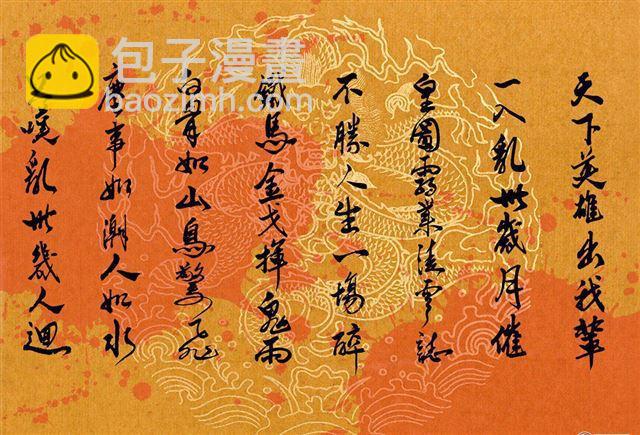 包子漫畫
baozimh.com
天下英雄出我輩
一入亂世歲月催
皇圖霸業
不勝人生一場醉
鐵馬金戈揮鬼雨
白骨如山鳥驚飛
塵事如潮人如水
亂世幾人迴